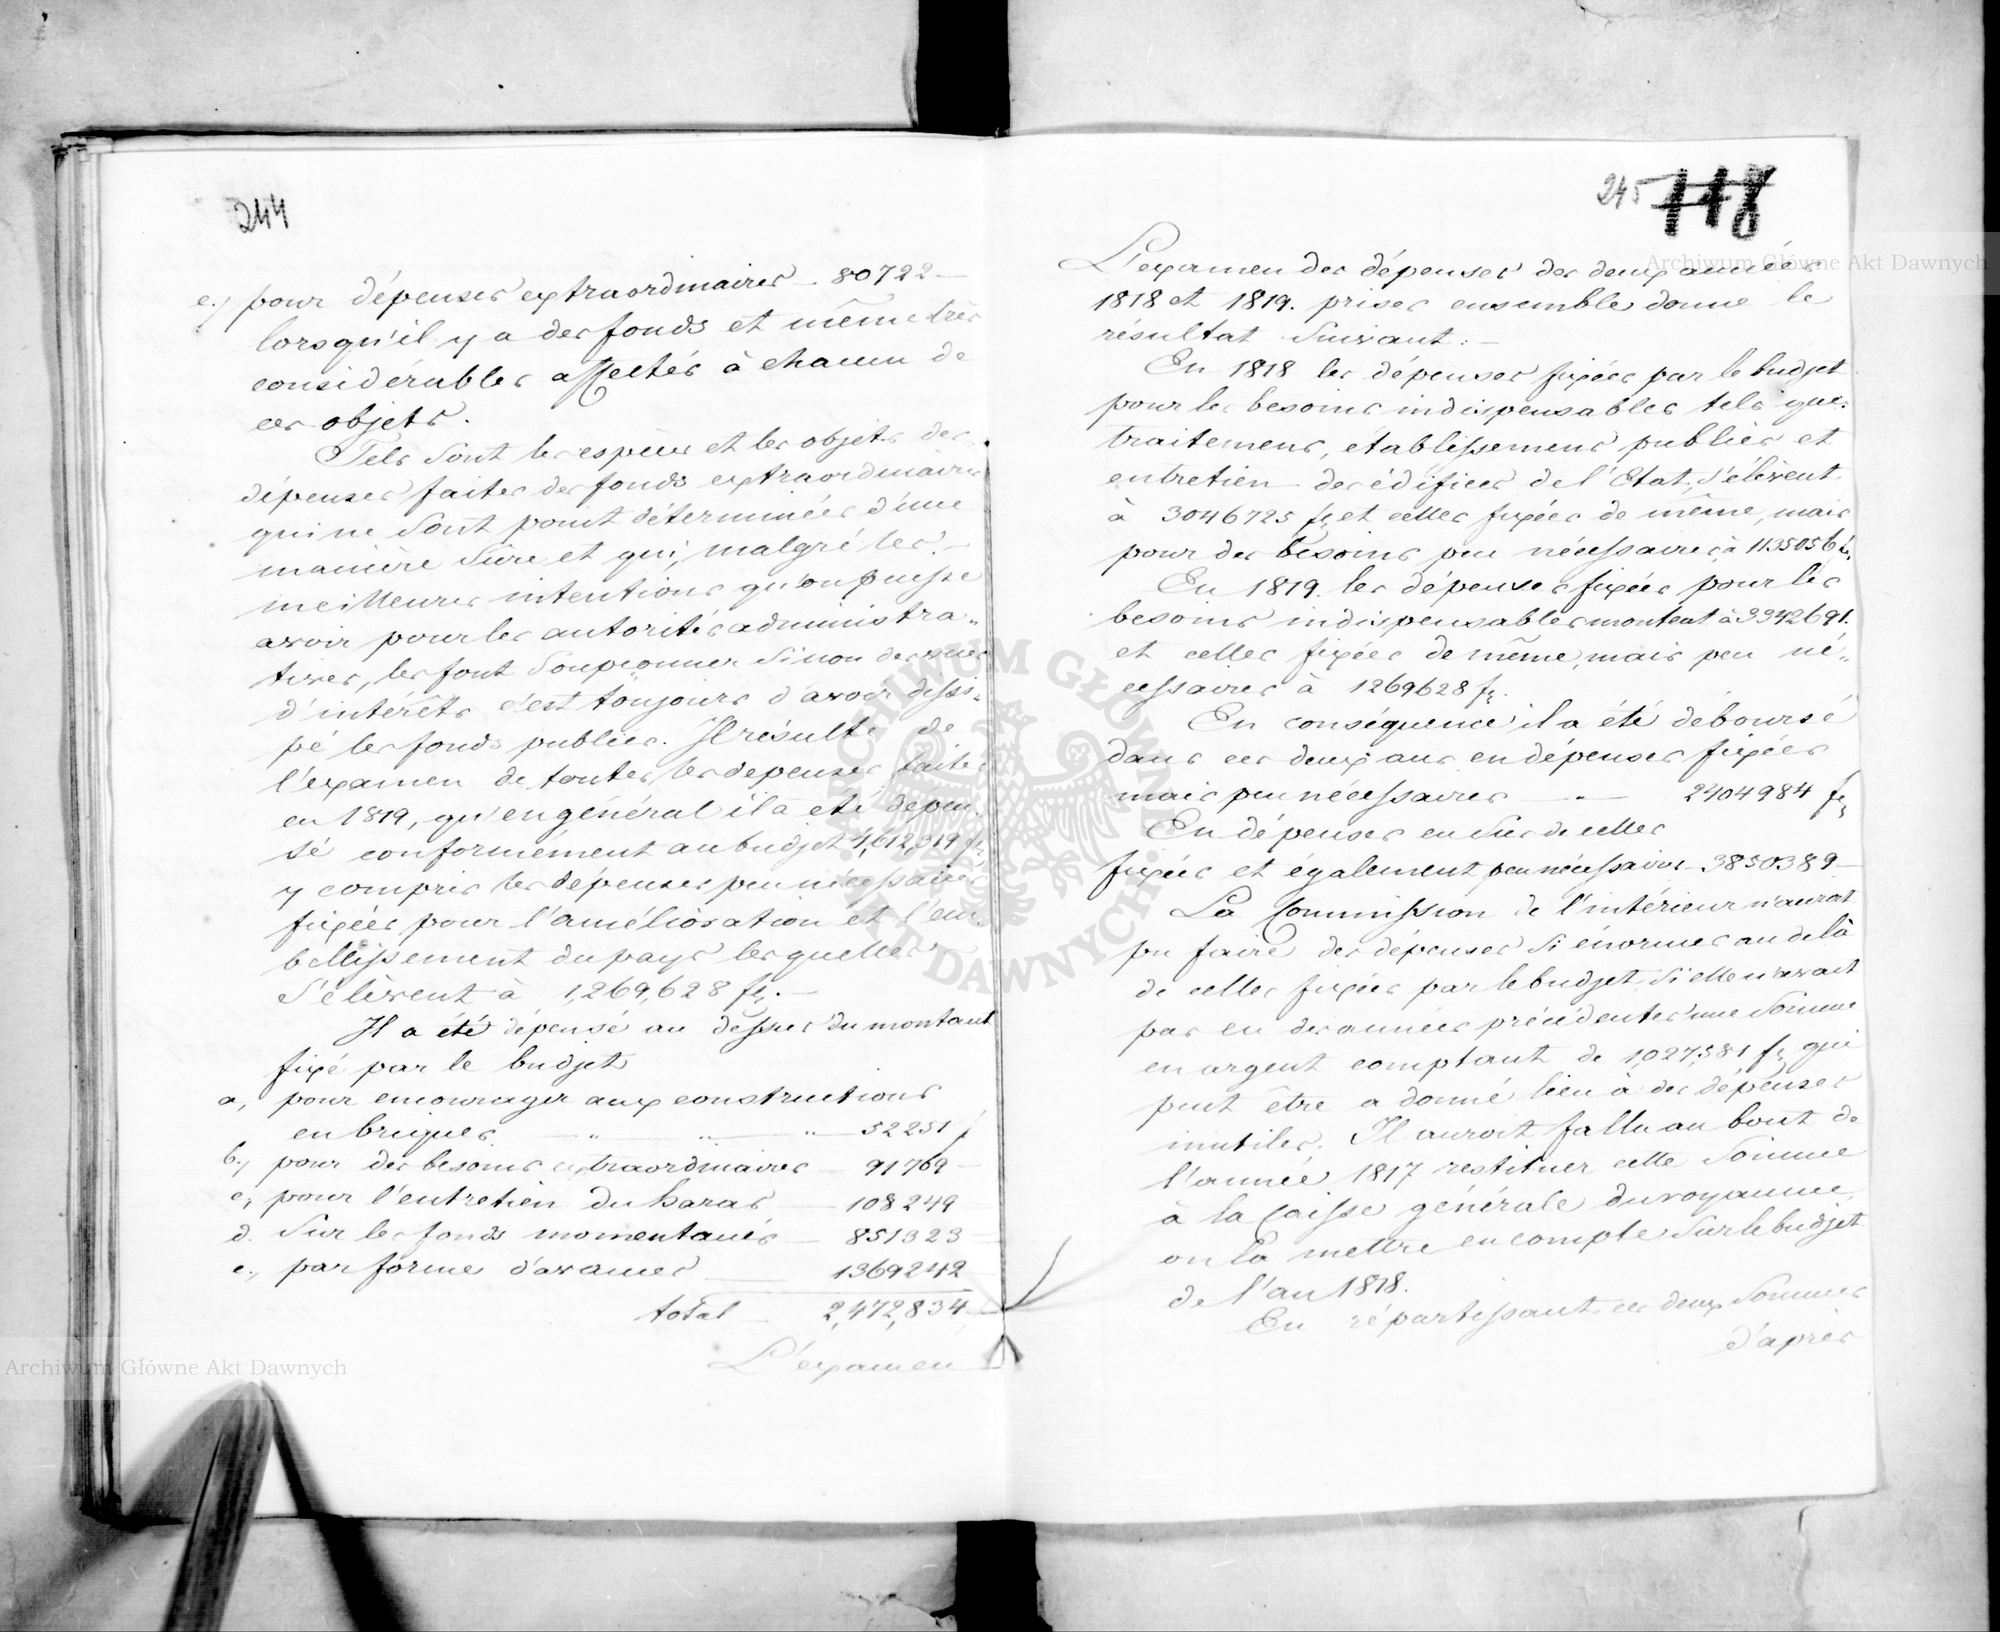 244
e.) pour dépenses extraordinaires - 80722 -
lorsqu'il y a des fonds et même très
considérables affectés à chacun de
ces objets.
Tels sont les espèces et les objets des
dépenses faites des fonds extraordinaires
qui ne sont point déterminées d'une
manière sûre et qui, malgré les
meilleures intentions qu'on puisse
avoir pour les autorités administra-
tives, les font soupçonner sinon des vues
d'intérêts c'est toujours d'avoir dissi-
pé les fonds publics. Il résulte de
l'examen de toutes les depenses faites
en 1819, qu'en général il a été dépen-
sé conformément au budjet 4,612,319 fl
y compris les dépenses peu nécessaires
fixées pour l'amélioration et l'em-
bellissement du pays lesquelles
s'élèvent à 1,269,628 fl. -
Il a été dépensé au dessus du montant
fixé par le budjet
a, pour encourager aux constructions
en briques - " - " - " - 52251 f
b.) pour des besoins extraordinaires - 91769 -
c, pour l'entretien du haras - 108249 -
d. sur les fonds momentanés - 851323 -
e., par forme d'avances - 1369242
total - 2,472,834 -
L'examen
245 118
L'examen des dépenses des deux années
1818 et 1819. prises ensemble donne le
résultat suivant: -
En 1818 les dépenses fixées par le budjet
pour les besoins indispensables tels que:
traitemens, établissemens publics et
entretien des édifices de l'Etat, s'élèvent
à 3046725 fl, et celles fixées de même, mais
pour des besoins peu nécessaires à 1135056 fl.
En 1819. les dépenses fixées pour les
besoins indispensables montent à 3342691.
et celles fixées de même, mais peu né-
cessaires à 1269628 fl.
En conséquence il a été déboursé
dans ces deux ans en dépenses fixées
mais peu nécessaires - " - 2404984 fl
En dépenses en sus de celles
fixées et également peu nécessaires - 3850389 -
La Commission de l'intérieur n'auroit
pu faire des dépenses si énormes au delà
de celles fixées par le budjet, si elle n'avait
pas eu des années précédentes une somme
en argent comptant de 1,027,381 fl, qui
peut être a donné lieu à des dépenses
inutiles. Il auroit fallu au bout de
l'année 1817 restituer cette somme
à la Caisse générale du royaume,
ou la mettre en compte sur le budjet
de l'an 1818.
En répartissant ces deux sommes
d'après
Archiwum Główne Akt Dawnych
Archiwum Główne Akt Dawnych
ARCHIWUM GŁÓWNE AKT DAWNYCH